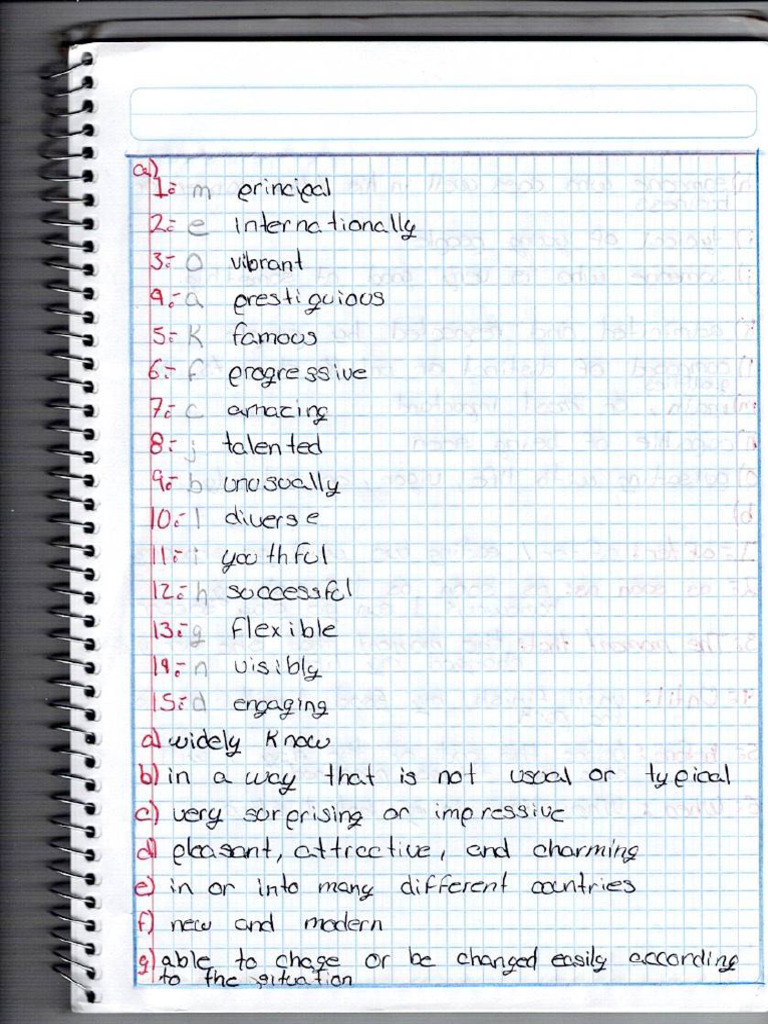 a)
1.- m principal
2.- e Internationally
3.- o vibrant
4.- a prestiguious
5.- k famous
6.- f progressive
7.- c amazing
8.- j talented
9.- b unusually
10.- l diverse
11.- i youthful
12.- h successful
13.- g flexible
14.- n visibly
15.- d engaging
a) widely know
b) in a way that is not usual or typical
c) very surprising or impressive
d) pleasant, attractive, and charming
e) in or into many different countries
f) new and modern
g) able to chage or be changed easily according
to the situation